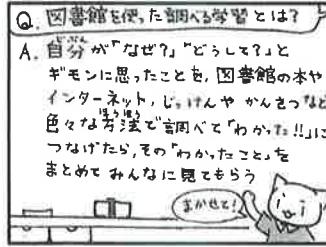 Q. 図書館を使った調べる学習とは?
A. 自分が「なぜ?」「どうして?」と
ギモンに思ったことを、図書館の本や
インターネット、じっけんやかんさつなど
色々な方法で調べて「わかった!!」に
つなげたら、その「わかったこと」を
まとめてみんなに見てもらう
まかせて!